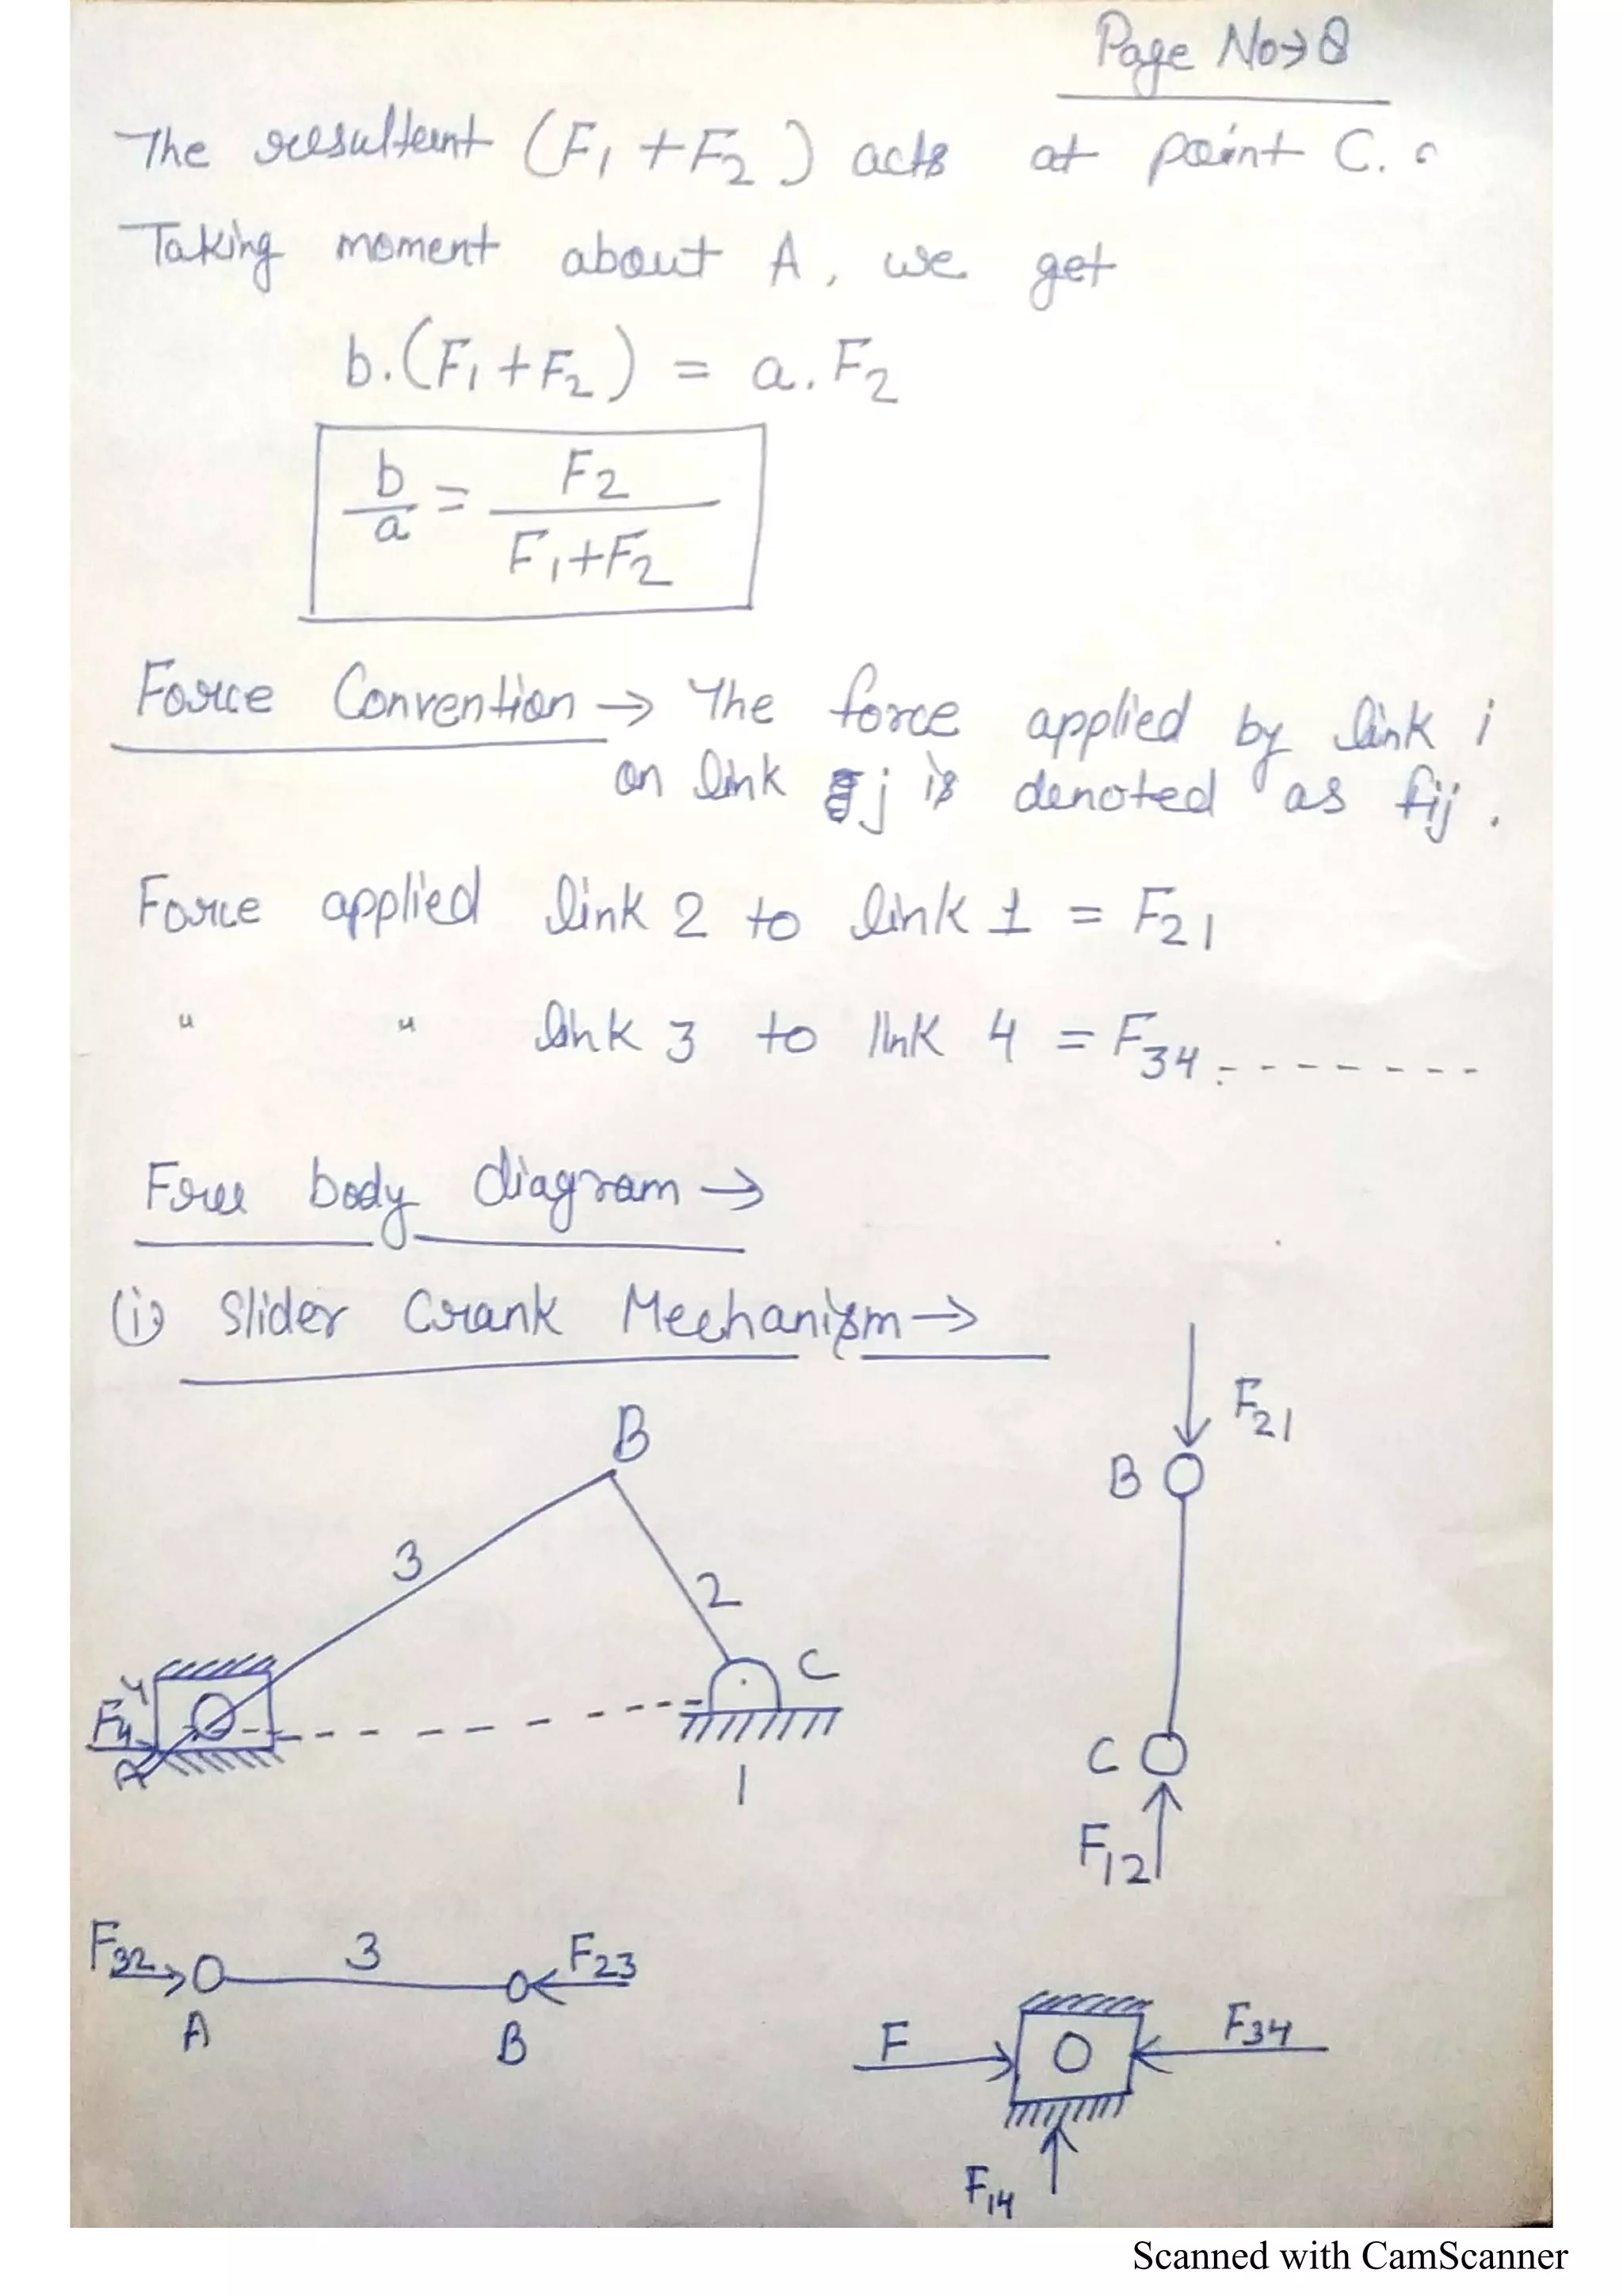 Page No→8
The resultant (F1 + F2) acts at point C.
Taking moment about A, we get
b.(F1 + F2) = a. F2
b/a = F2/(F1+F2)
Force Convention → The force applied by link i
on link j is denoted as fij.
Force applied link 2 to link 1 = F21
" " link 3 to link 4 = F34. - - - - - - -
Free body diagram →
(i) Slider Crank Mechanism →
B
3
2
C
4
F4
A
1
F21
B
C
F12
F32
3
F23
A
B
F
F34
F14
Scanned with CamScanner